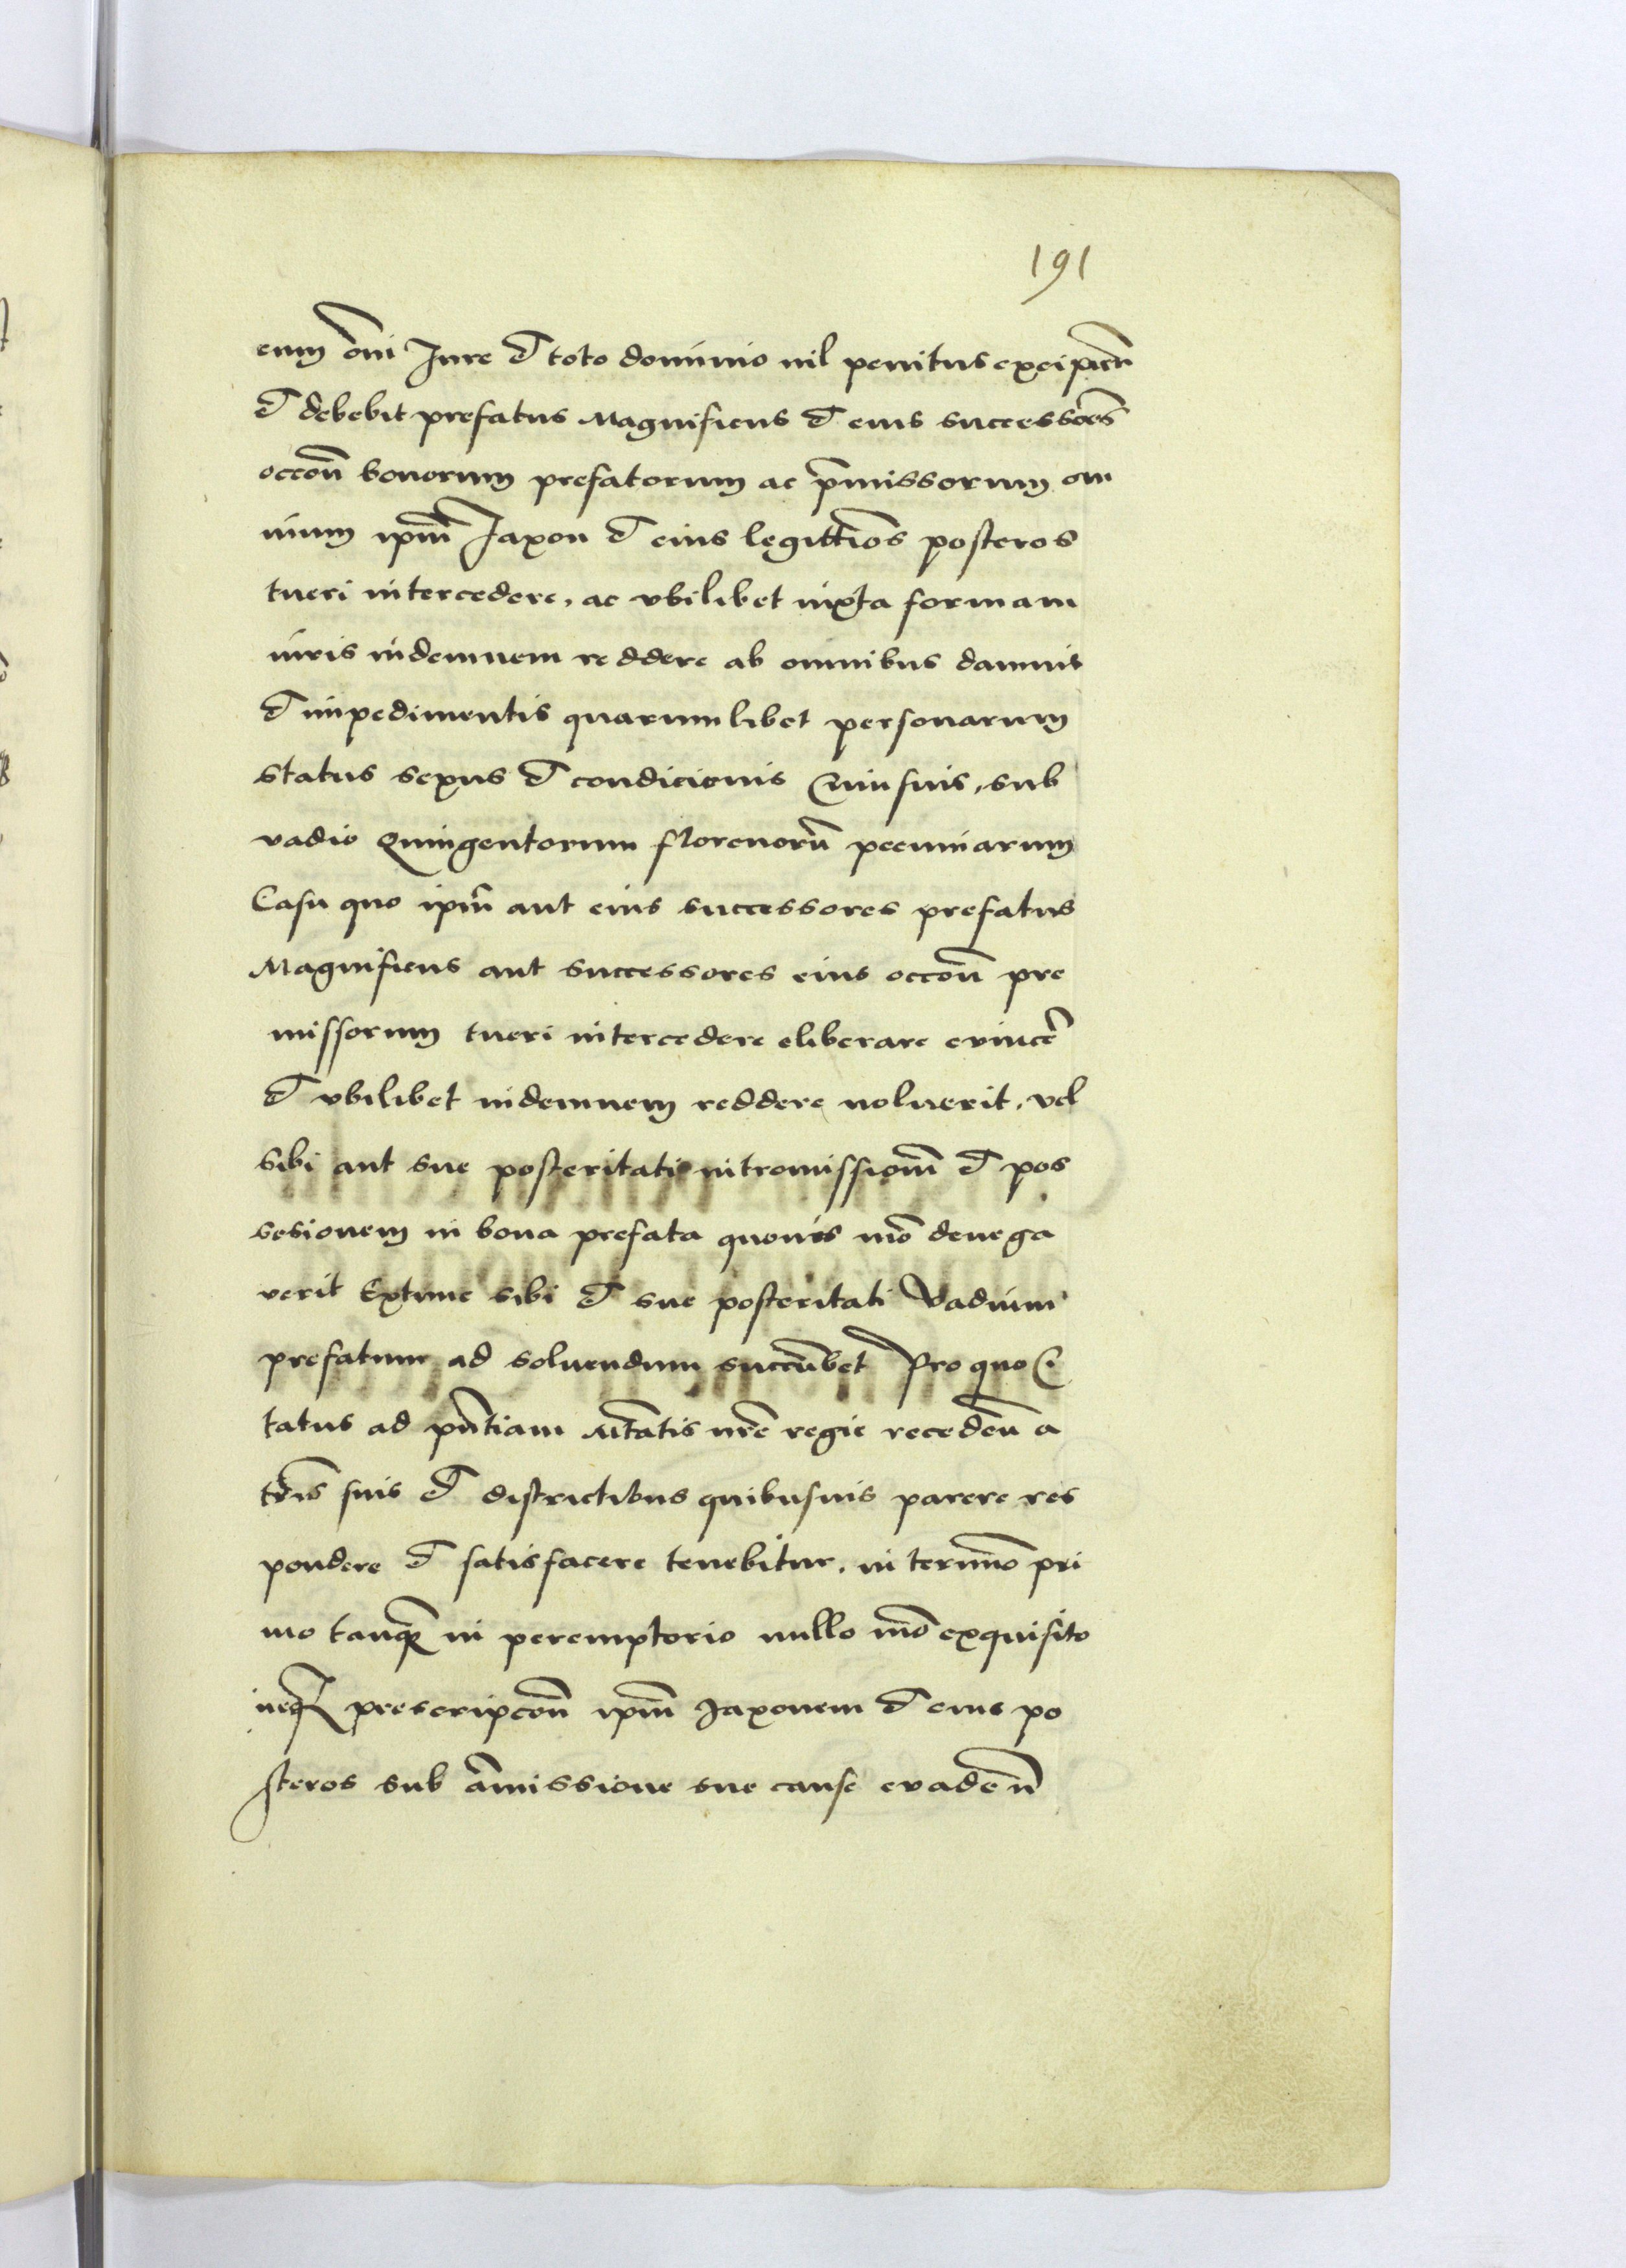 191
cum o͞mi Jure et toto dominio nil penitus excipien̄
et debebit prefatus Magnificus et eius successor͞es
occo͞n bonorum prefatorum ac p͞missorum om
nium ip͞m Jaxon et eius legittio͞s posteros
tueri intercedere, ac vbilibet iuxta formam
iuris indemnem reddere ab omnibus damnis
et impedimentis quarumlibet personarum
status sexus et condicionis Cuiusuis, sub
vadio Quingentorum florenoru͞ pecuniarum
Casu quo ip͞m aut eius successores prefatus
Magnificus aut successores eius occo͞n pre
missorum tueri intercedere eliberare euince͞r
et vbilibet indemnem reddere noluerit, vel
sibi aut sue posteritati intromissio͞m et pos
sesionem in bona prefata quouis mo͞ denega
uerit Extunc sibi et sue posteritati Vadium
prefatum ad soluendum succu͞bet Pro quo Ci
tatus ad pn͞tiam M͞tatis nr͞e regie receden͞ a
tr͞is suis et districtibus quibusuis parere res
pondere et satisfacere tenebitur, in termi͞o pri
mo tanq͞ in peremptorio nullo mo͞ exquisito
neq͞ prescripco͞n ip͞m Jaxonem et eius po
steros sub a͞missione sue cause euaden͞